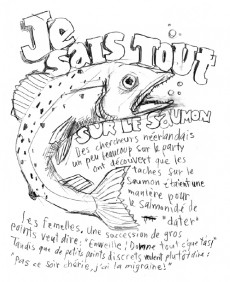 Je
sais tout
sur le saumon
Des chercheurs néerlandais
un peu beaucoup sur le party
ont découvert que les
taches sur le
saumon étaient une
manière pour
le salmonidé de
"dater"
Les femelles, une succession de gros
points veut dire: "Enweille! Donne tout c'que t'as!"
Tandis que de petits points discrets veulent plutôt dire:
"Pas ce soir chérie, j'ai la migraine!"